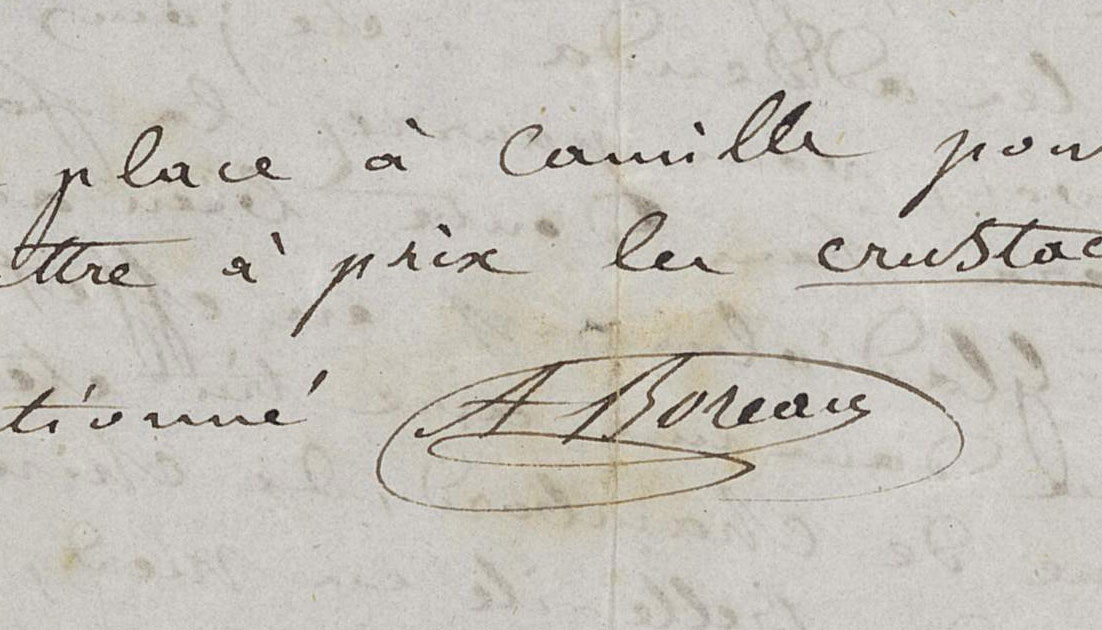 place à Camille pour
ettre à prix les crustac
tionné A Boreau